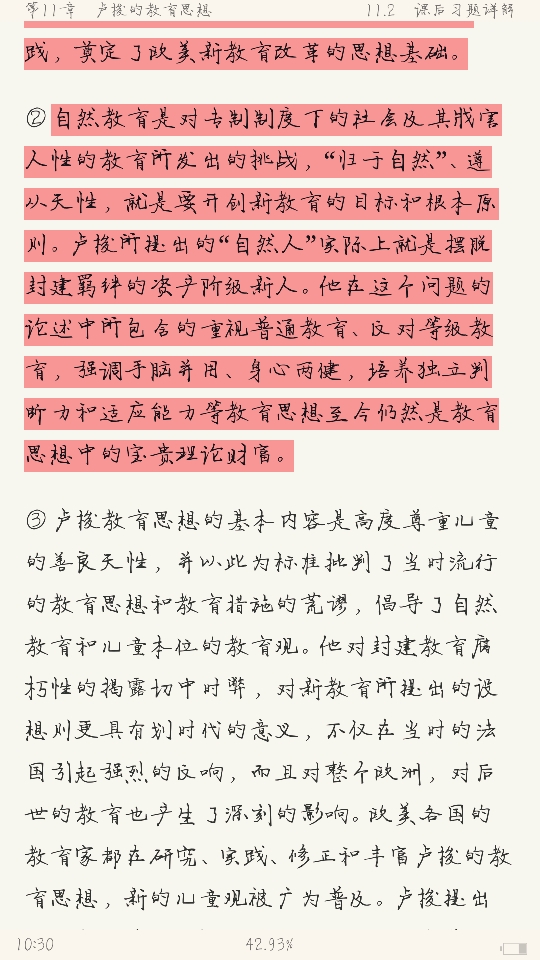 第11章 卢梭的教育思想 11.2 课后习题详解
践，奠定了欧美新教育改革的思想基础。
②自然教育是对专制制度下的社会及其戕害
人性的教育所发出的挑战，“归于自然”、遵
从天性，就是要开创新教育的目标和根本原
则。卢梭所提出的“自然人”实际上就是摆脱
封建羁绊的资产阶级新人。他在这个问题的
论述中所包含的重视普通教育、反对等级教
育，强调手脑并用、身心两健，培养独立判
断力和适应能力等教育思想至今仍然是教育
思想中的宝贵理论财富。
③卢梭教育思想的基本内容是高度尊重儿童
的善良天性，并以此为标准批判了当时流行
的教育思想和教育措施的荒谬，倡导了自然
教育和儿童本位的教育观。他对封建教育腐
朽性的揭露切中时弊，对新教育所提出的设
想则更具有划时代的意义，不仅在当时的法
国引起强烈的反响，而且对整个欧洲，对后
世的教育也产生了深刻的影响。欧美各国的
教育家都在研究、实践、修正和丰富卢梭的教
育思想，新的儿童观被广为普及。卢梭提出
10:30 42.93%